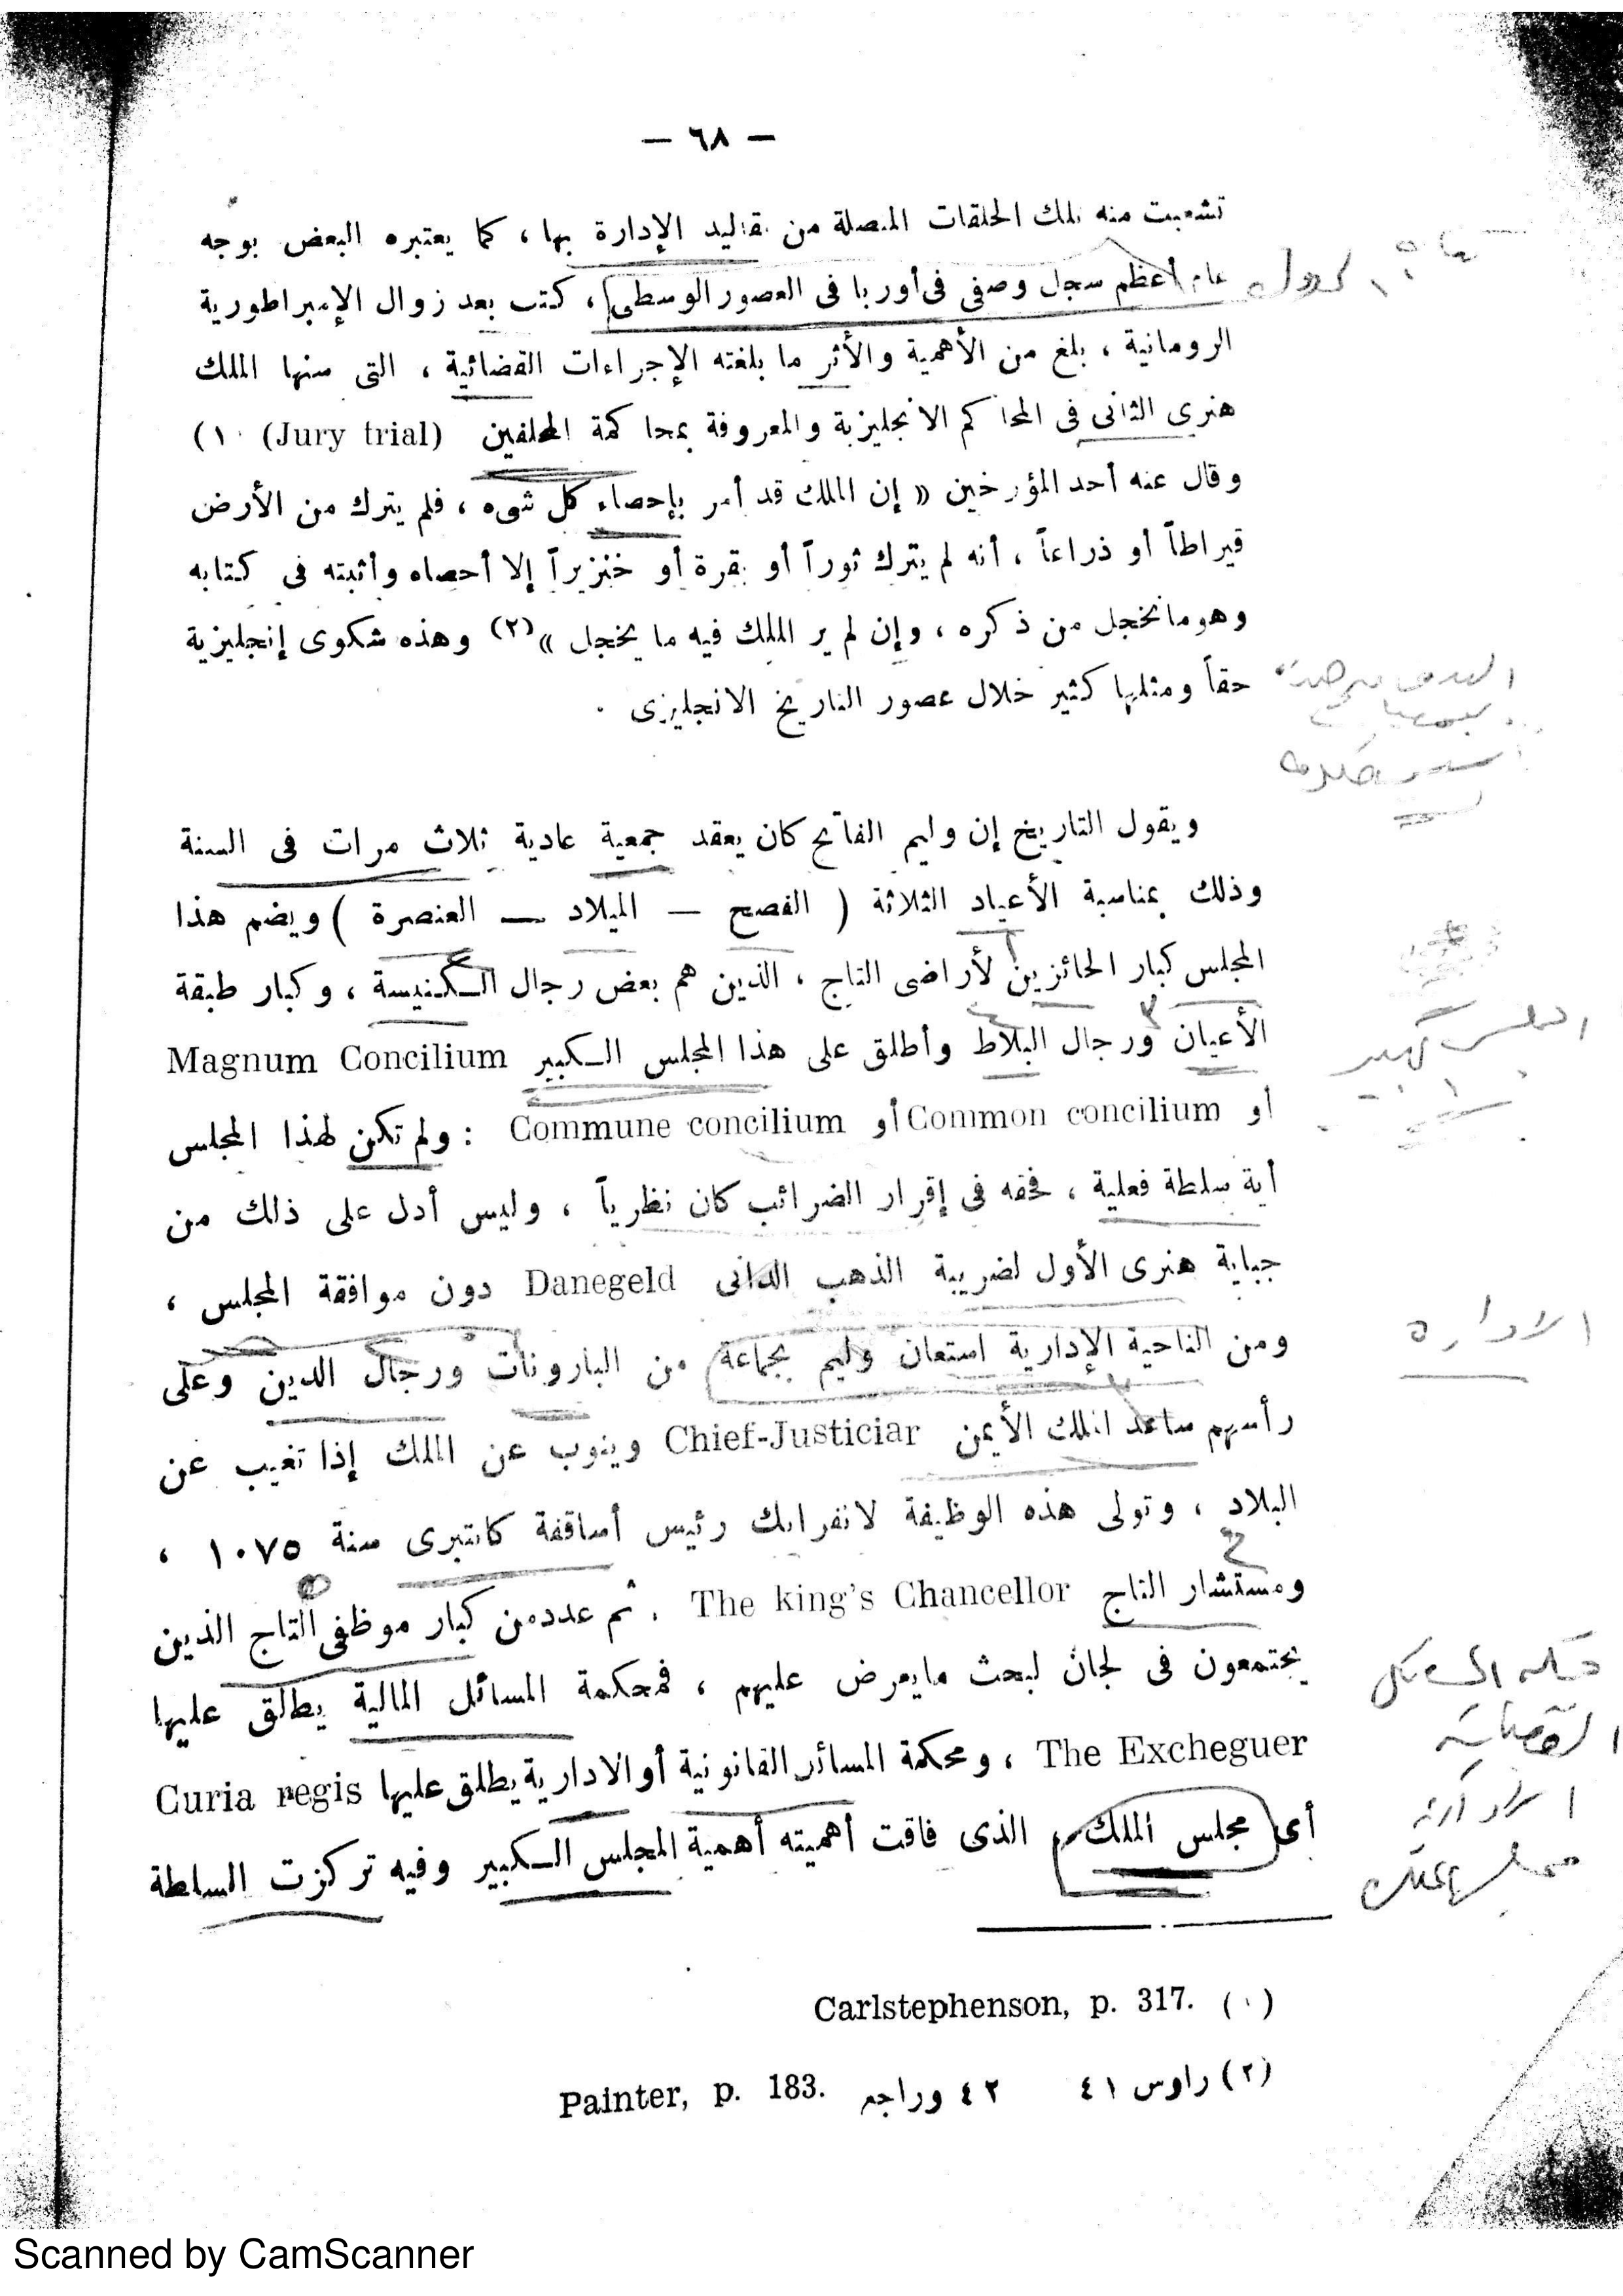 — ٦٨ —
تشعبت منه تلك الحلقات المتصلة من تقاليد الإدارة بها ، كما يعتبره البعض بوجه
عام أعظم سجل وصفى فى أوربا فى العصور الوسطى ، كتب بعد زوال الإمبراطورية
الرومانية ، بلغ من الأهمية والأثر ما بلغته الإجراءات القضائية ، التى سنها الملك
هنرى الثانى فى المحاكم الانجليزية والمعروفة بمحاكمة المحلفين (Jury trial) (١
وقال عنه أحد المؤرخين « إن الملك قد أمر بإحصاء كل شىء ، فلم يترك من الأرض
قيراطاً أو ذراعاً ، أنه لم يترك ثوراً أو بقرة أو خنزيراً إلا أحصاه وأثبته فى كتابه
وهو ما نخجل من ذكره ، وإن لم ير الملك فيه ما يخجل » (٢) وهذه شكوى إنجليزية
حقاً ومثلها كثير خلال عصور التاريخ الانجليزى .
ويقول التاريخ إن وليم الفاتح كان يعقد جمعية عادية ثلاث مرات فى السنة
وذلك بمناسبة الأعياد الثلاثة ( الفصح — الميلاد — العنصرة ) ويضم هذا
المجلس كبار الحائزين لأراضى التاج ، الذين هم بعض رجال الكنيسة ، وكبار طبقة
الأعيان ورجال البلاط وأطلق على هذا المجلس الكبير Magnum Concilium
أو Common concilium أو Commune concilium : ولم تكن لهذا المجلس
أية سلطة فعلية ، فحقه فى إقرار الضرائب كان نظرياً ، وليس أدل على ذلك من
جباية هنرى الأول لضريبة الذهب الدانى Danegeld دون موافقة المجلس ،
ومن الناحية الإدارية استعان وليم بجماعة من البارونات ورجال الدين وعلى
رأسهم ساعد الملك الأيمن Chief-Justiciar وينوب عن الملك إذا تغيب عن
البلاد ، وتولى هذه الوظيفة لانفرانك رئيس أساقفة كانتبرى سنة ١٠٧٥ ،
ومستشار التاج The king's Chancellor . ثم عدد من كبار موظفى التاج الذين
يجتمعون فى لجان لبحث مايعرض عليهم ، فمحكمة المسائل المالية يطلق عليها
The Excheguer ، ومحكمة المسائل القانونية أو الادارية يطلق عليها Curia regis
أى مجلس الملك ، الذى فاقت أهميته أهمية المجلس الكبير وفيه تركزت السلطة
المجلس الكبير
الادارة
القضائية
الادارية
مجلس الملك
(١) Carlstephenson, p. 317.
(٢) راوس ٤١ ٤٢ وراجع Painter, p. 183.
Scanned by CamScanner